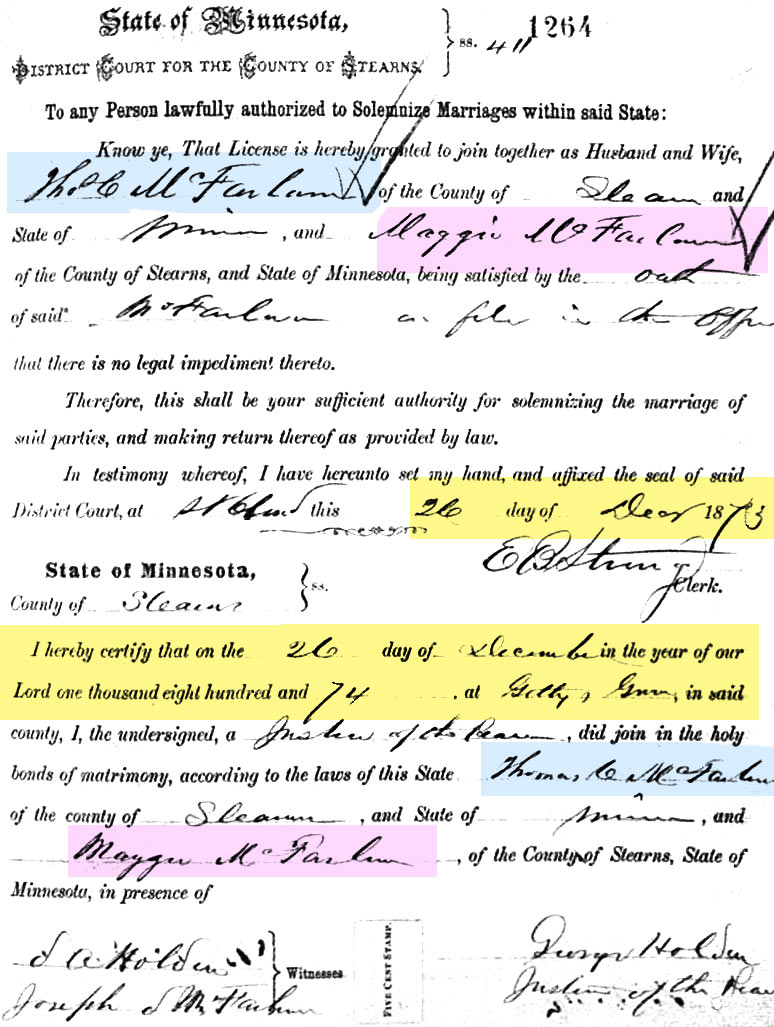 State of Minnesota,
District Court for the County of Stearns. } ss. 411 1264
To any Person lawfully authorized to Solemnize Marriages within said State:
Know ye, That License is hereby granted to join together as Husband and Wife,
Thos C McFarlane of the County of Stearn and
State of Minn, and Maggie McFarlane
of the County of Stearns, and State of Minnesota, being satisfied by the oath
of said McFarlane on file in the Office
that there is no legal impediment thereto.
Therefore, this shall be your sufficient authority for solemnizing the marriage of
said parties, and making return thereof as provided by law.
In testimony whereof, I have hereunto set my hand, and affixed the seal of said
District Court, at St Cloud this 26 day of Decr 1873
State of Minnesota, } ss.
E B Strong Clerk.
County of Stearns
I hereby certify that on the 26 day of December in the year of our
Lord one thousand eight hundred and 74, at Getty's Grove, in said
county, I, the undersigned, a Justice of the Peace, did join in the holy
bonds of matrimony, according to the laws of this State Thomas C McFarlane
of the county of Stearns, and State of Minn, and
Maggie McFarlane, of the County of Stearns, State of
Minnesota, in presence of
S A Holden
Joseph S McFarlane
} Witnesses
FIVE CENT STAMP.
George Holden
Justice of the Peace